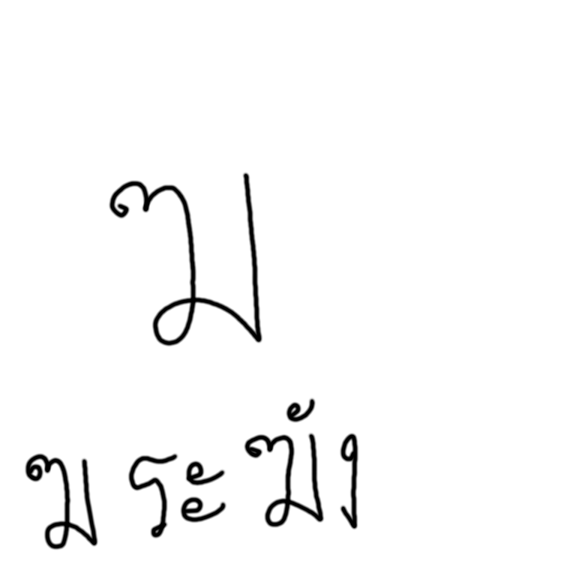 ฆ
ฆ ระฆัง